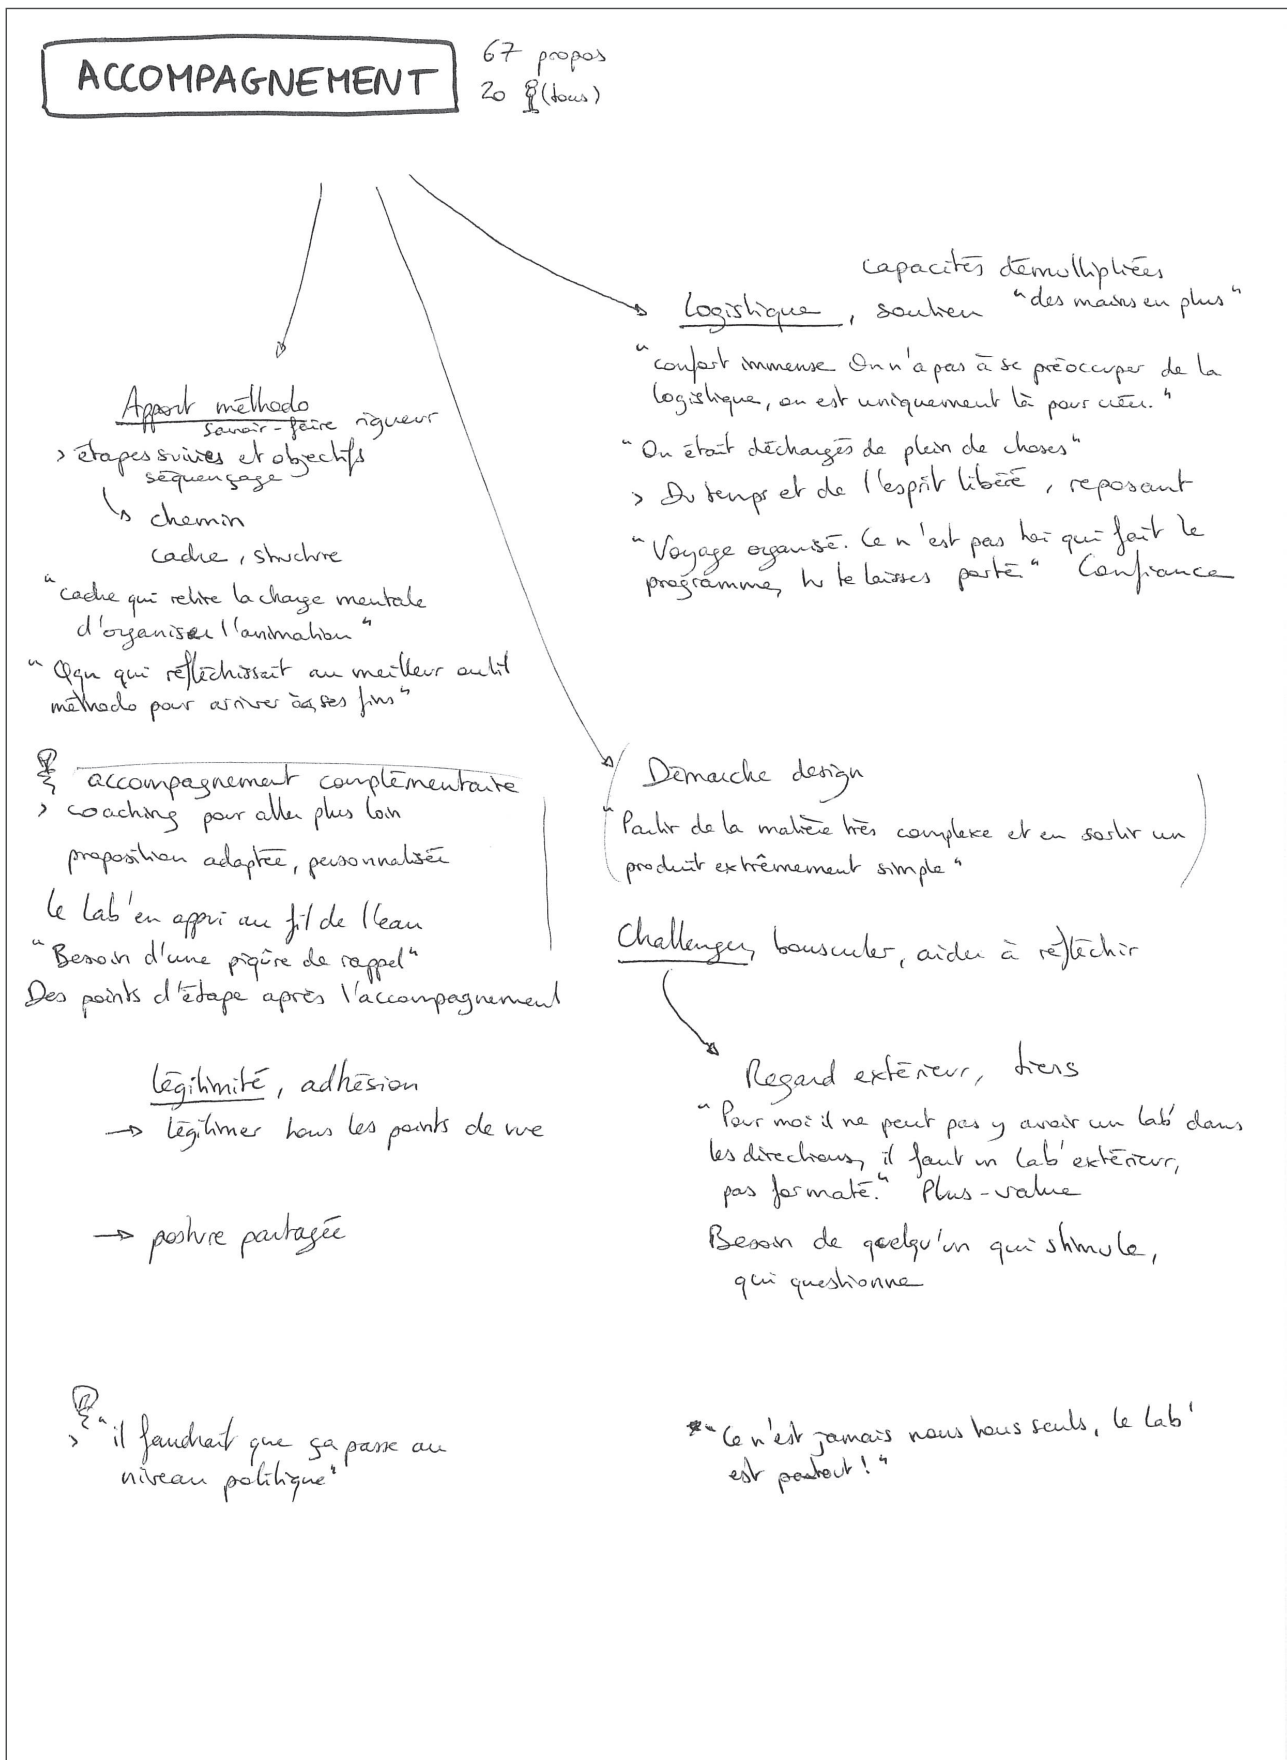 ACCOMPAGNEMENT
67 propos
20 (tous)
Apport méthodo
savoir-faire rigueur
> étapes suivies et objectifs
séquençage
chemin
cadre, structure
"cadre qui retire la charge mentale
d'organiser l'animation"
"Qqn qui réfléchissait au meilleur outil
méthodo pour arriver à ses fins"
accompagnement complémentaire
> coaching pour aller plus loin
proposition adaptée, personnalisée
le Lab' en appui au fil de l'eau
"Besoin d'une piqûre de rappel"
Des points d'étape après l'accompagnement
légitimité, adhésion
→ légitimer tous les points de vue
→ posture partagée
> "il faudrait que ça passe au
niveau politique"
capacités démultipliées
logistique, soutien "des mains en plus"
"confort immense On n'a pas à se préoccuper de la
logistique, on est uniquement là pour créer."
"On était déchargés de plein de choses"
> Du temps et de l'esprit libéré, reposant
"Voyage organisé. Ce n'est pas toi qui fait le
programme, tu te laisses porté" Confiance
Démarche design
"Partir de la matière très complexe et en sortir un
produit extrêmement simple"
Challenger, bousculer, aider à réfléchir
Regard extérieur, tiers
"Pour moi il ne peut pas y avoir un lab' dans
les directions, il faut un Lab' extérieur,
pas formaté." Plus-value
Besoin de quelqu'un qui stimule,
qui questionne
"Ce n'est jamais nous tous seuls, le Lab'
est partout!"